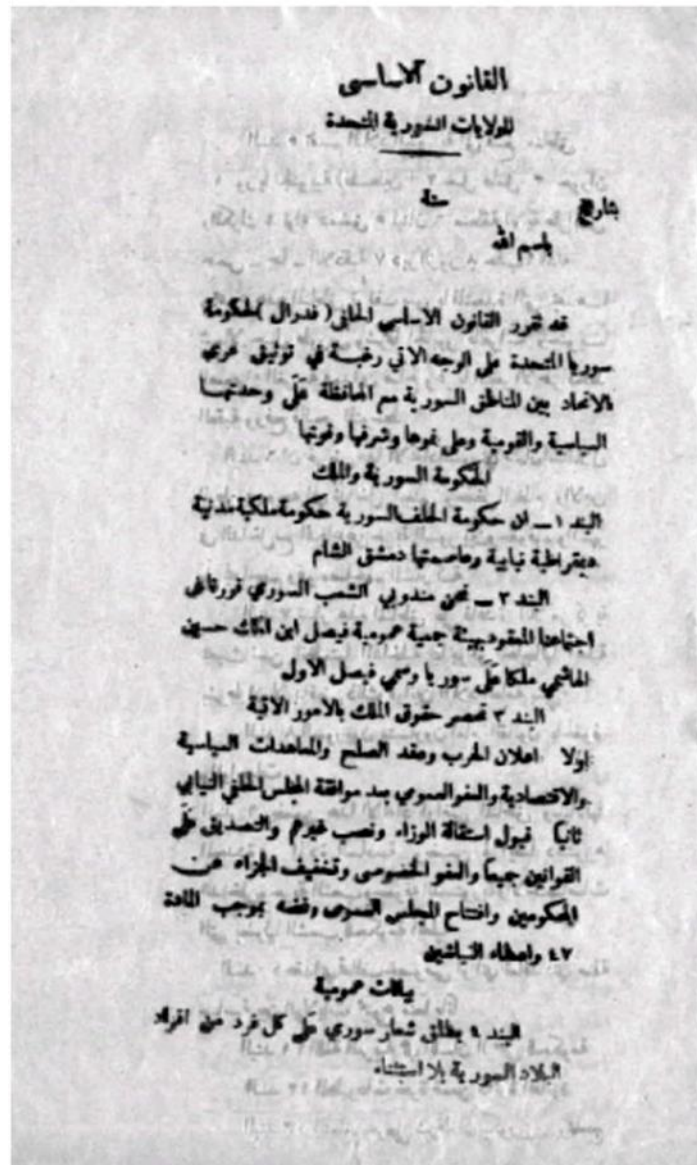 القانون الاساسى
للولايات السورية المتحدة
بتاريخ سنة
بسم الله
قد تقرر القانون الاساسي الحلفى ( فدرال ) لحكومة
سوريا المتحدة على الوجه الاتي رغبة في توثيق عرى
الاتحاد بين المناطق السورية مع المحافظة على وحدتهـا
السياسية والقومية وعلى نموها وشرفها وقوتها
الحكومة السورية والملك
البند ١ — ان حكومة الحلف السورية حكومة ملكية مدنية
ديمقراطية نيابية وعاصمتها دمشق الشام
البند ٢ — نحن مندوبي الشعب السوري قررنا فى
اجتماعنا المعقود بهيئة جمعية عمومية فيصل ابن الملك حسين
الهاشمي ملكا على سوريا وسمي فيصل الاول
البند ٣ تحصر حقوق الملك بالامور الاتية
اولا اعلان الحرب وعقد الصلح والمعاهدات السياسية
والاقتصادية والعفو العمومي بعد موافقة المجلس الحلفي النيابي
ثانيا قبول استقالة الوزراء ونصب غيرهم والتصديق على
القوانين جميعا والعفو الخصوصى وتخفيف الجزاء عن
المحكومين وافتتاح المجلس العمومى وفضه بموجب المادة
٤٧ واعطاء النياشين
بيانات عمومية
البند ٤ يطلق شعار سوري على كل فرد من افراد
البلاد السورية بلا استثناء